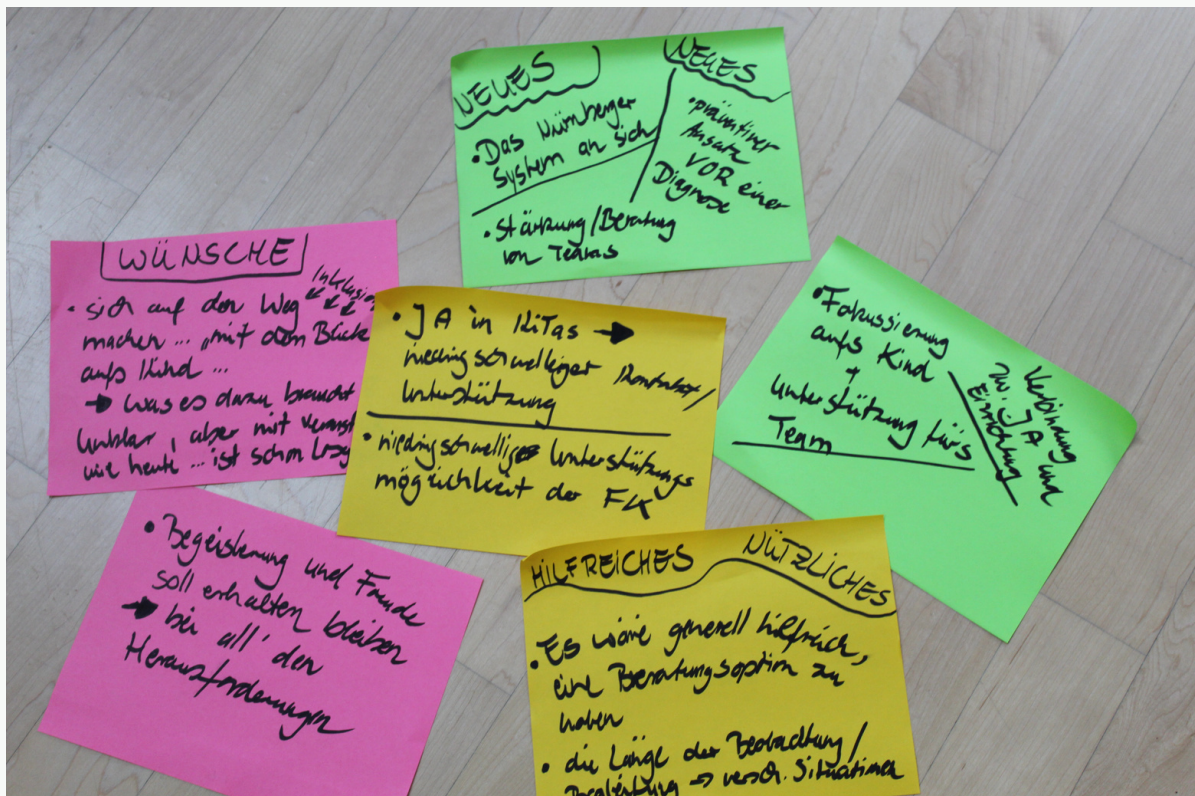 NEUES
• Das Nürnberger
System an sich
• Stärkung/Beratung
von Teams
NEUES
• präventiver
Ansatz
VOR einer
Diagnose
WÜNSCHE
Inklusion
• sich auf den Weg
machen ... „mit dem Blick
aufs Kind ...
→ was es dazu braucht
unklar, aber mit
wie heute ... ist schon
• JA in KiTas →
niedrigschwelliger Kontakt/
Unterstützung
• niedrigschwellige Unterstützungs
möglichkeit der FK
• Fokussierung
aufs Kind
+
Unterstützung fürs
Team
Verbindung
zw. JA und
Einrichtung
• Begeisterung und Freude
soll erhalten bleiben
→ bei all' den
Herausforderungen
HILFREICHES NÜTZLICHES
• Es wäre generell hilfreich,
eine Beratungsoption zu
haben
• die Länge der Beobachtung/
Begleitung → versch. Situationen